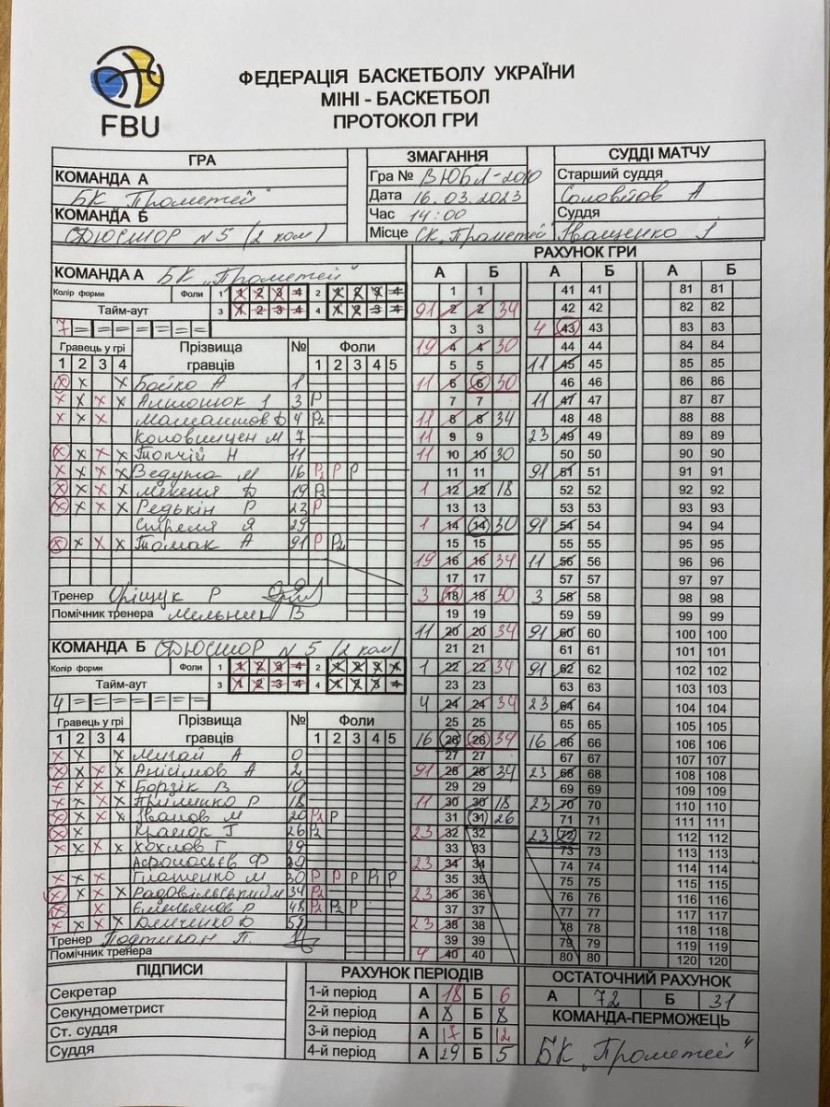 FBU
ФЕДЕРАЦІЯ БАСКЕТБОЛУ УКРАЇНИ
МІНІ - БАСКЕТБОЛ
ПРОТОКОЛ ГРИ
ГРА
КОМАНДА А
БК „Прометей"
КОМАНДА Б
СДЮСШОР N5 (2 ком)
ЗМАГАННЯ
Гра № ВЮБЛ-2010
Дата 16.03.2023
Час 14:00
Місце СК „Прометей"
СУДДІ МАТЧУ
Старший суддя
Соловйов А
Суддя
Іващенко І
КОМАНДА А БК „Прометей"
Колір форми Фоли 1 1 2 3 4 2 1 2 3 4
Тайм-аут 3 1 2 3 4 4 1 2 3 4
7 = = = = = = =
Гравець у грі Прізвища гравців № Фоли
1 2 3 4 1 2 3 4 5
Бойко А 1
3 P
4 P2
7
Топчій Н 11
Ведута М 16 P1 P P
19 P2
Редькін Р 23 P
29
Томак А 91 P P2
Тренер Оріщук Р
Помічник тренера Мельник В
КОМАНДА Б СДЮСШОР N 5 (2 ком)
Колір форми Фоли 1 1 2 3 4 2 1 2 3 4
Тайм-аут 3 1 2 3 4 4 1 2 3 4
4 = = = = = = =
Гравець у грі Прізвища гравців № Фоли
1 2 3 4 1 2 3 4 5
Мигай А 0
Анісімов А 2
Борзік В 10
18
Іванов М 20 P1 P
26 P2
Хохлов Г
Ігнатенко М 30 P P P P1 P
34 P2
Ємельянов 48 P2 P2 P
Тренер
Помічник тренера
РАХУНОК ГРИ
А Б А Б А Б
1 1 41 41 81 81
91 2 2 34 42 42 82 82
3 3 4 43 43 83 83
19 4 4 30 44 44 84 84
5 5 11 45 45 85 85
11 6 6 30 46 46 86 86
7 7 11 47 47 87 87
11 8 8 34 48 48 88 88
11 9 9 23 49 49 89 89
11 10 10 30 50 50 90 90
11 11 91 51 51 91 91
1 12 12 18 52 52 92 92
13 13 53 53 93 93
1 14 14 30 91 54 54 94 94
15 15 55 55 95 95
19 16 16 34 11 56 56 96 96
17 17 57 57 97 97
3 18 18 30 3 58 58 98 98
19 19 59 59 99 99
11 20 20 34 91 60 60 100 100
21 21 61 61 101 101
1 22 22 34 91 62 62 102 102
23 23 63 63 103 103
4 24 24 34 23 64 64 104 104
25 25 65 65 105 105
16 26 26 34 16 66 66 106 106
27 27 67 67 107 107
91 28 28 34 23 68 68 108 108
29 29 69 69 109 109
11 30 30 18 23 70 70 110 110
31 31 26 71 71 111 111
23 32 32 23 72 72 112 112
33 33 73 73 113 113
23 34 34 74 74 114 114
35 35 75 75 115 115
23 36 36 76 76 116 116
37 37 77 77 117 117
23 38 38 78 78 118 118
39 39 79 79 119 119
4 40 40 80 80 120 120
ПІДПИСИ
Секретар
Секундометрист
Ст. суддя
Суддя
РАХУНОК ПЕРІОДІВ
1-й період А 18 Б 6
2-й період А 8 Б 8
3-й період А 17 Б 12
4-й період А 29 Б 5
ОСТАТОЧНИЙ РАХУНОК
А 72 Б 31
КОМАНДА-ПЕРМОЖЕЦЬ
БК „Прометей"